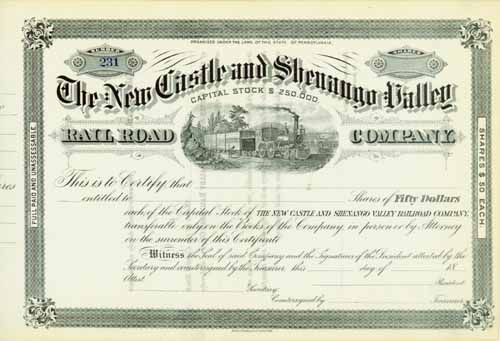 ORGANIZED UNDER THE LAWS OF THE STATE OF PENNSYLVANIA.
NUMBER
231
SHARES
The New Castle and Shenango Valley
CAPITAL STOCK $ 250.000.
RAIL ROAD COMPANY.
FULL PAID AND UNASSESSABLE
SHARES $ 50 EACH.
This is to Certify that
entitled to Shares of Fifty Dollars
each of the Capital Stock of THE NEW CASTLE AND SHENANGO VALLEY RAILROAD COMPANY,
transferable only on the Books of the Company, in person or by Attorney
on the surrender of this Certificate.
Witness the Seal of said Company and the Signatures of the President attested by the
Secretary and countersigned by the Treasurer this day of 18
Attest President
Secretary.
Countersigned by Treasurer